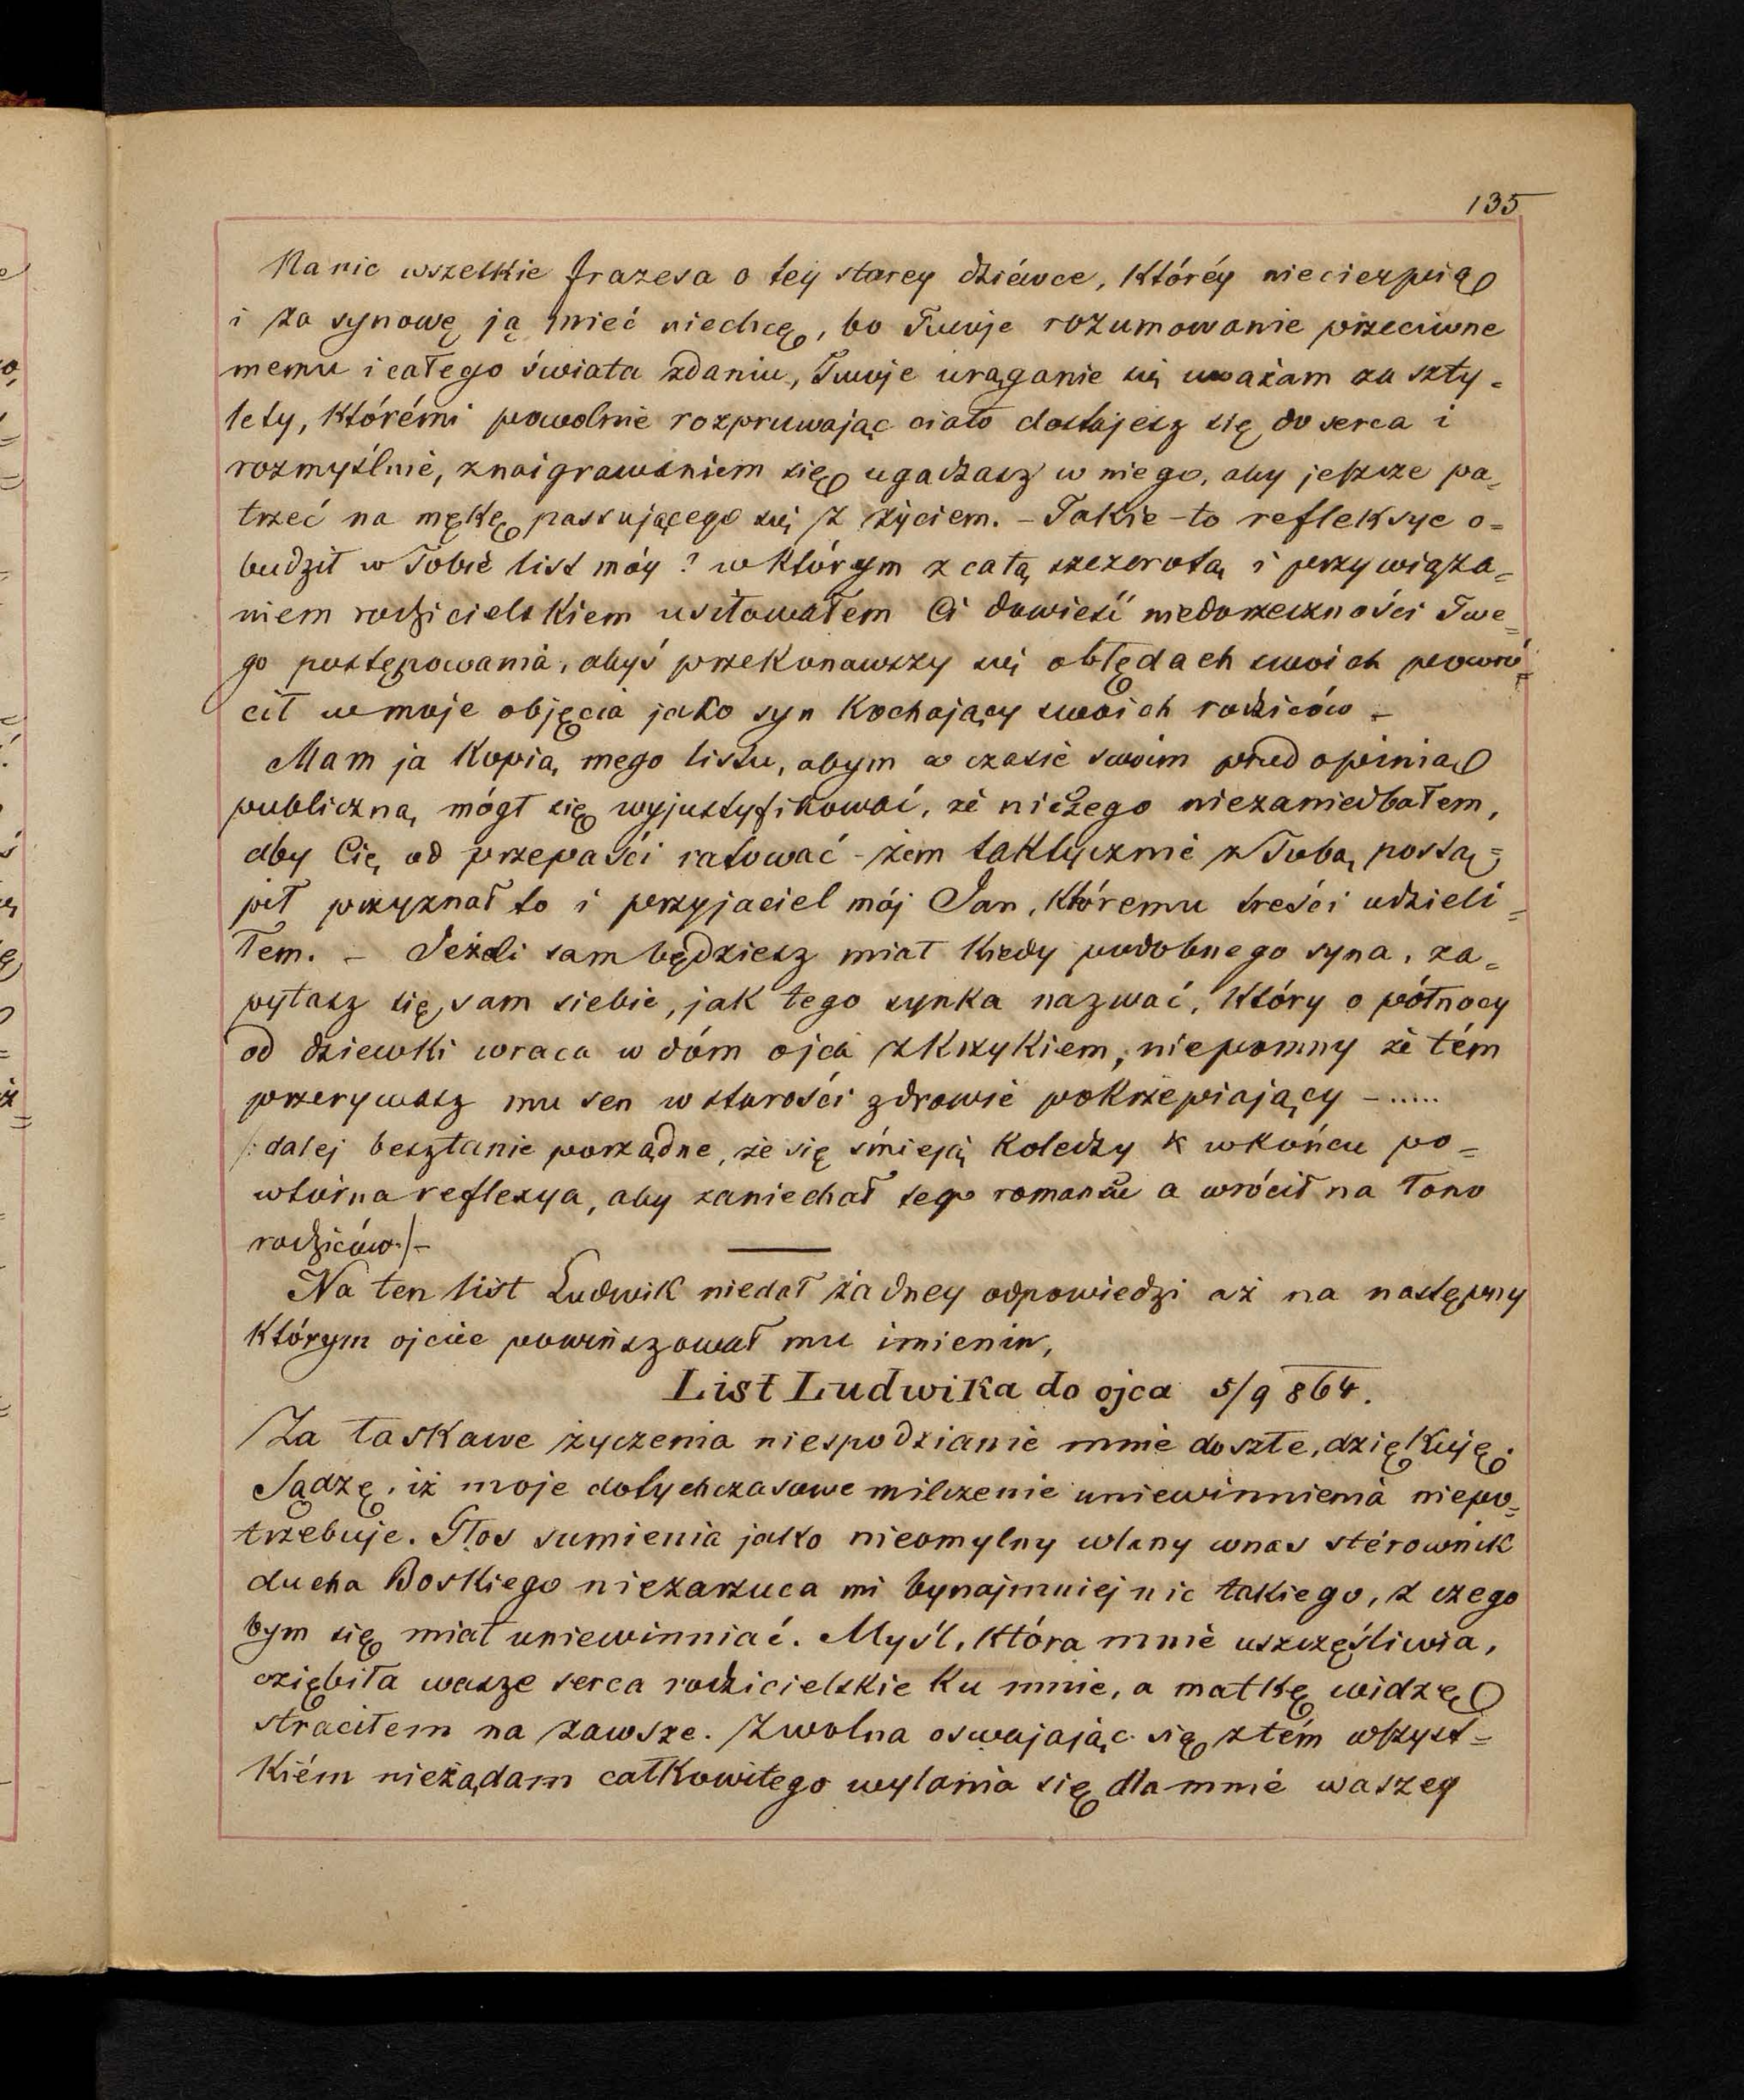 135
Na nic wszelkie frazesa o tey starey dziéwce, któréy niecierpię
i za synowę ją mieć niechcę, bo Twoje rozumowanie przeciwne
memu i całego świata zdaniu, Twoje urąganie się uważam za szty-
lety, którémi powolnie rozpruwając ciało dostajesz się do serca i
rozmyślnie, znaigrawaniem się ugadzasz w niego, aby jeszcze pa-
trzeć na mękę passującego się z życiem. - Takie-to refleksye o=
budził w Tobie list móy? w którym z całą szczerotą i przywiąza=
niem rodzicielskiem usiłowałém Ci dowieść niedorzeczności Twe=
go postępowania, abyś przekonawszy się obłędach swoich powró=
cił w moje objęcia jako syn kochający swoich rodziców -
Mam ja kopią mego listu, abym w czasie swoim przed opinią
publiczną mógł się wyjustyfikować, że niczego niezaniedbałem,
aby Cię od przepaści ratować - żem taktycznie z Tobą postą=
pił przyznał to i przyjaciel mój Jan, któremu treści udzieli=
łem. - Jeżeli sam będziesz miał kiedy podobnego syna, za=
pytasz się sam siebie, jak tego synka nazwać, który o północy
od dziewki wraca w dóm ojca z krzykiem, niepomny że tém
przerywasz mu sen w starości zdrowie pokrzepiający - .....
/: dalej besztanie porządne, że się śmieją koledzy & wkońcu po=
wtórna reflexya, aby zaniechał tego romansu a wrócił na łono
rodziców :/ -
Na ten list Ludwik niedał żadney odpowiedzi aż na następny
którym ojciec powinszował mu imienin,
List Ludwika do ojca 5/9 864.
Za łaskawe życzenia niespodzianie mnie doszłe, dziękuję.
Sądzę, iż moje dotychczasowe milczenie uniewinnienia niepo=
trzebuje. Głos sumienia jako nieomylny wlany wnas stérownik
ducha Boskiego niezarzuca mi bynajmniej nic takiego, z czego
bym się miał uniewinniać. Myśl, która mnie uszczęśliwia,
oziębiła wasze serca rodzicielskie ku mnie, a matkę widzę
straciłem na zawsze. Zwolna oswajając się z tém wszyst=
kiém nieżądam całkowitego wylania się dla mnie waszey